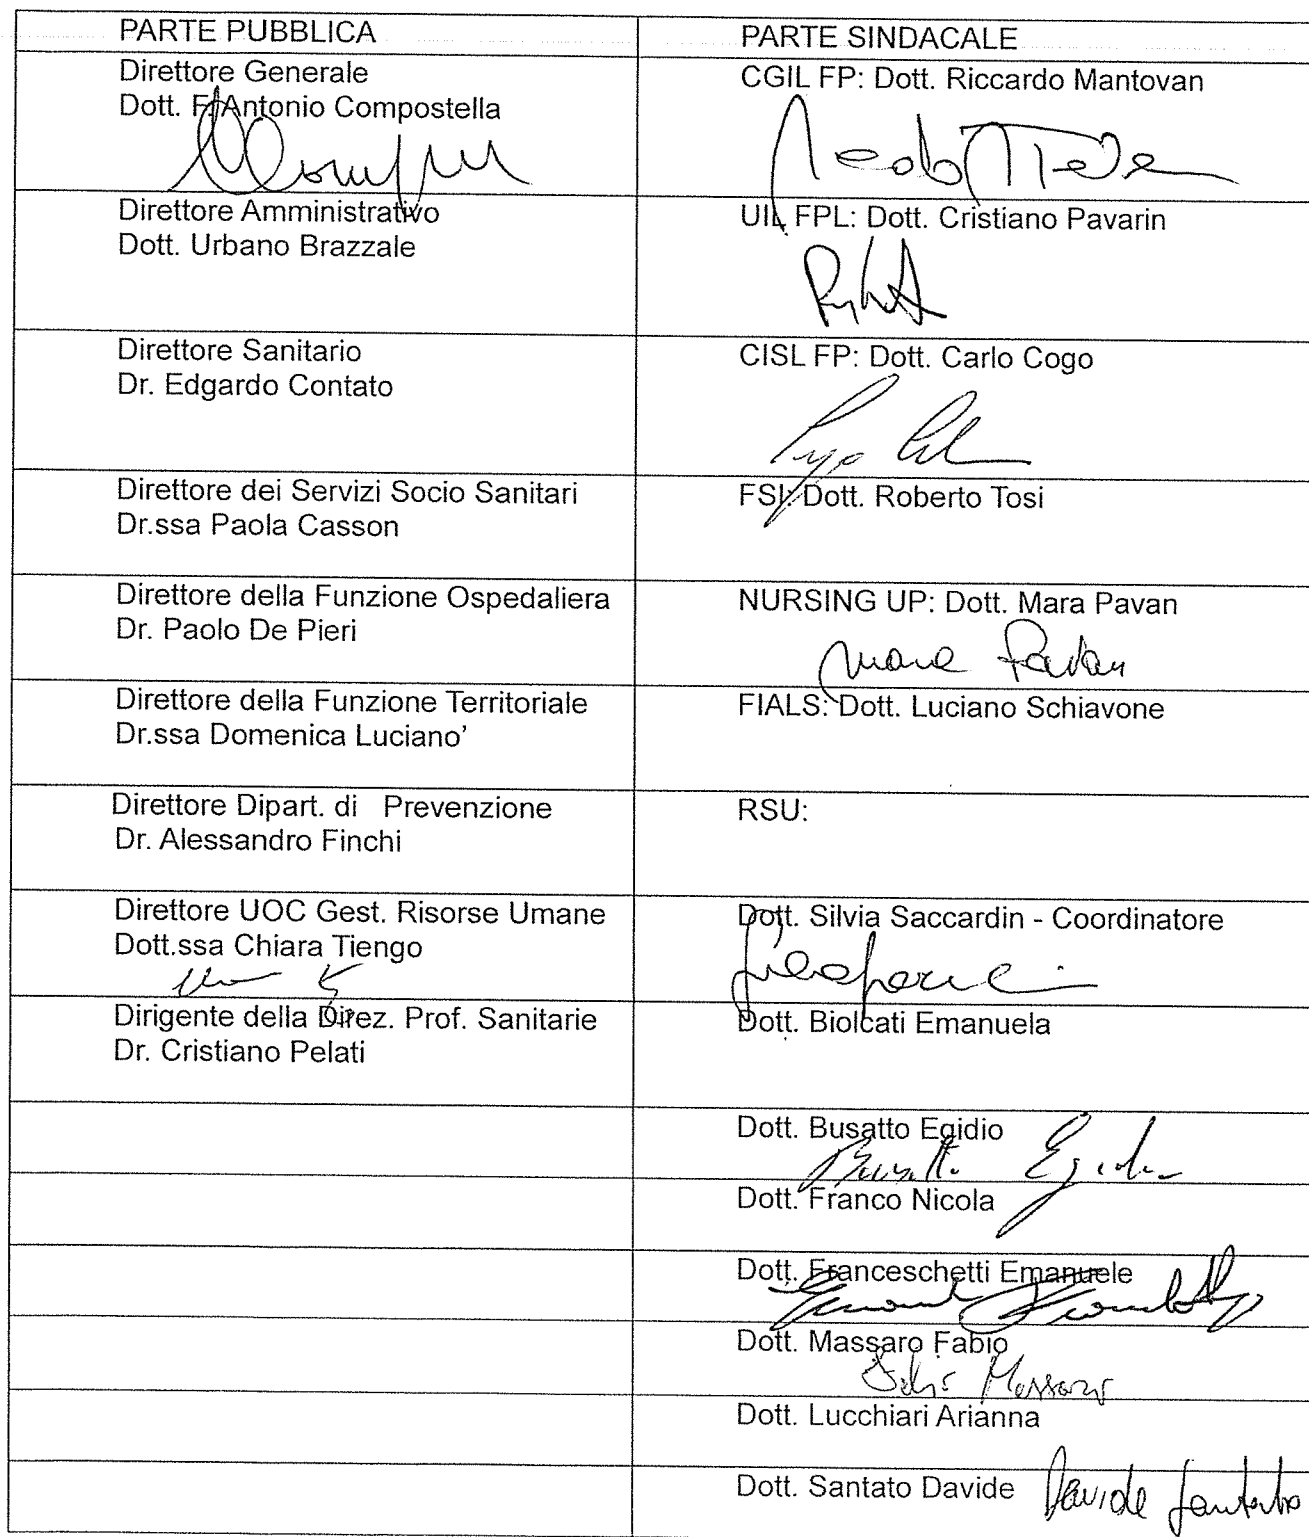 PARTE PUBBLICA
PARTE SINDACALE
Direttore Generale
Dott. F. Antonio Compostella
CGIL FP: Dott. Riccardo Mantovan
Direttore Amministrativo
Dott. Urbano Brazzale
UIL FPL: Dott. Cristiano Pavarin
Direttore Sanitario
Dr. Edgardo Contato
CISL FP: Dott. Carlo Cogo
Direttore dei Servizi Socio Sanitari
Dr.ssa Paola Casson
FSI: Dott. Roberto Tosi
Direttore della Funzione Ospedaliera
Dr. Paolo De Pieri
NURSING UP: Dott. Mara Pavan
Mara Pavan
Direttore della Funzione Territoriale
Dr.ssa Domenica Luciano’
FIALS: Dott. Luciano Schiavone
Direttore Dipart. di Prevenzione
Dr. Alessandro Finchi
RSU:
Direttore UOC Gest. Risorse Umane
Dott.ssa Chiara Tiengo
Dott. Silvia Saccardin - Coordinatore
Dirigente della Direz. Prof. Sanitarie
Dr. Cristiano Pelati
Dott. Biolcati Emanuela
Dott. Busatto Egidio
Busatto Egidio
Dott. Franco Nicola
Dott. Franceschetti Emanuele
Dott. Massaro Fabio
Fabio Massaro
Dott. Lucchiari Arianna
Dott. Santato Davide Davide Santato